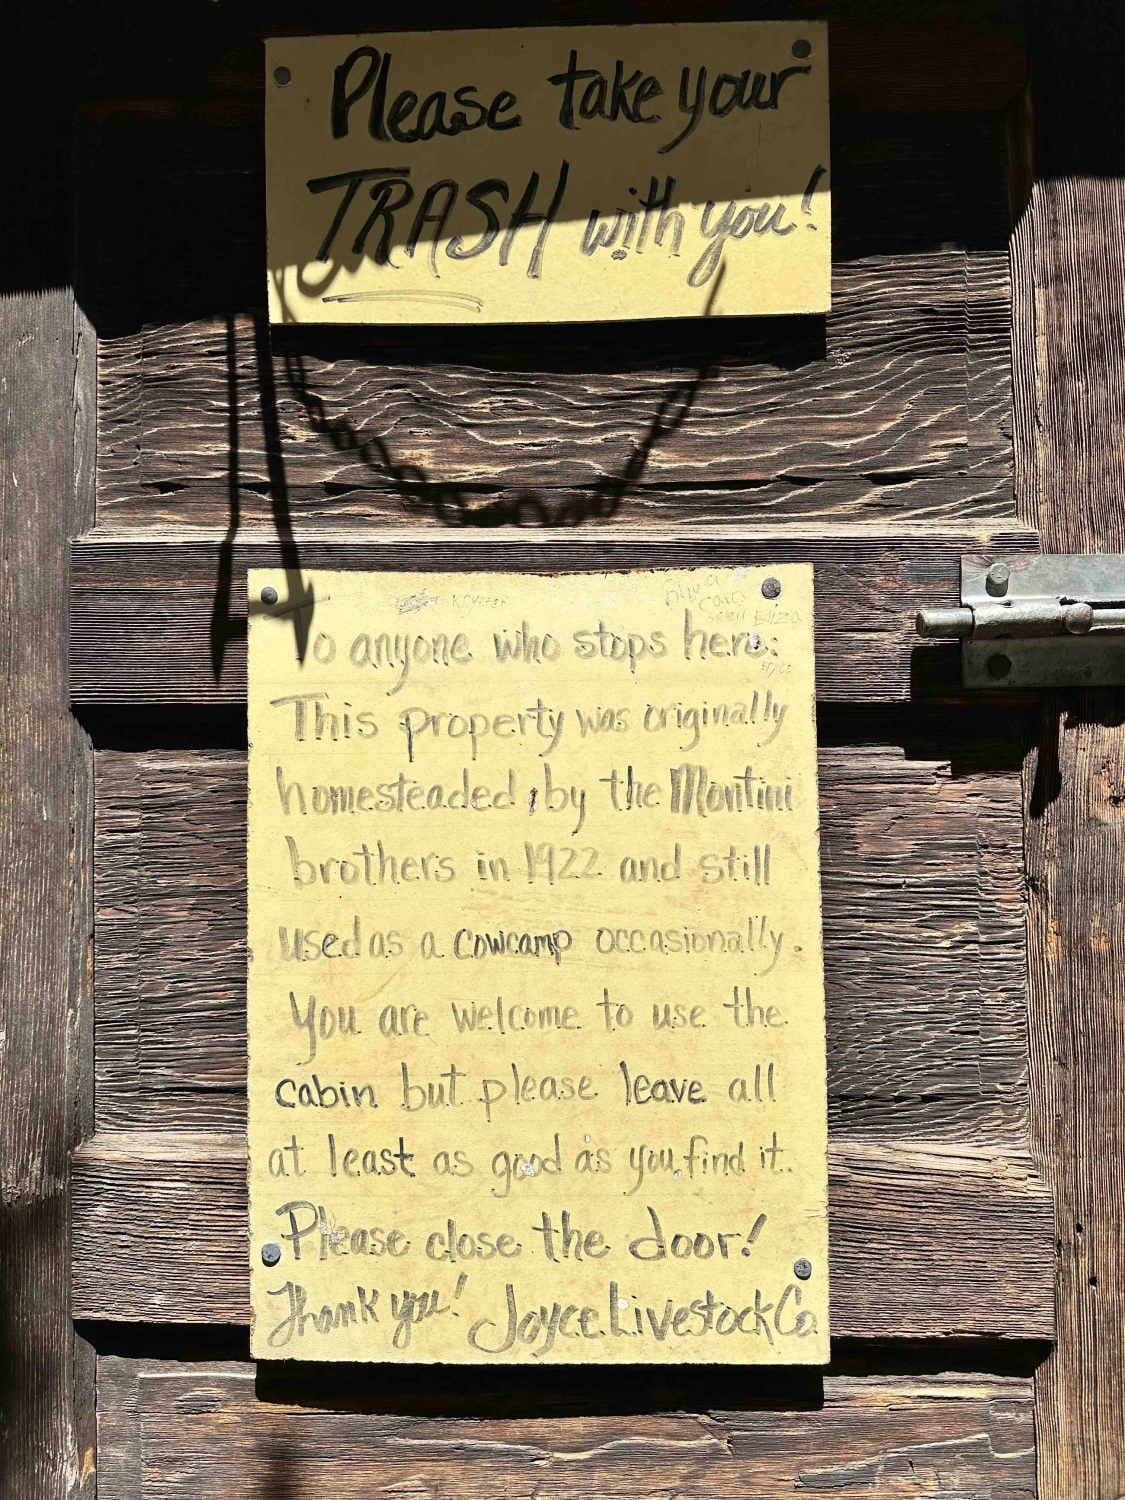 Please take your
TRASH with you!
To anyone who stops here:
This property was originally
homesteaded by the Montini
brothers in 1922 and still
used as a cowcamp occasionally.
You are welcome to use the
cabin but please leave all
at least as good as you find it.
Please close the door!
Thank you! Joyce Livestock Co